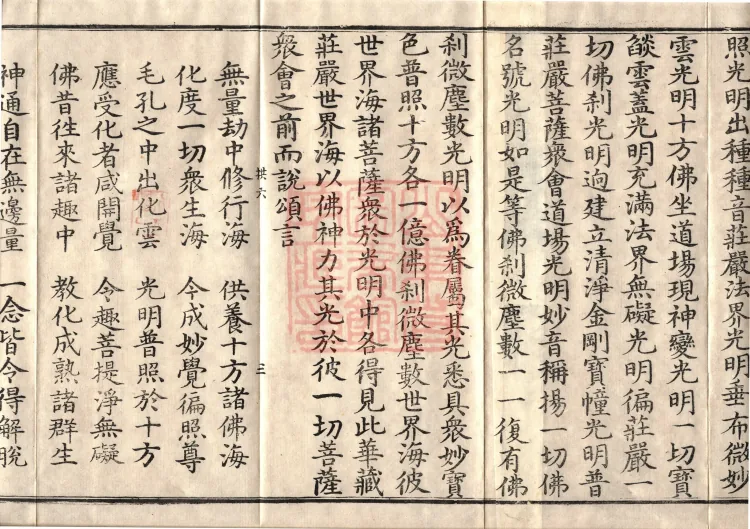 照光明出種種音莊嚴法界光明垂布微妙
雲光明十方佛坐道場現神變光明一切寶
燄雲蓋光明充滿法界無礙光明徧莊嚴一
切佛刹光明逈建立清淨金剛寶幢光明普
莊嚴菩薩衆會道場光明妙音稱揚一切佛
名號光明如是等佛刹微塵數一一復有佛
刹微塵數光明以爲眷屬其光悉具衆妙寶
色普照十方各一億佛刹微塵數世界海彼
世界海諸菩薩衆於光明中各得見此華藏
莊嚴世界海以佛神力其光於彼一切菩薩
衆會之前而說頌言
拱六 三
無量劫中修行海 供養十方諸佛海
化度一切衆生海 今成妙覺徧照尊
毛孔之中出化雲 光明普照於十方
應受化者咸開覺 令趣菩提淨無礙
佛昔徃來諸趣中 教化成熟諸群生
神通自在無邊量 一念皆令得解脫